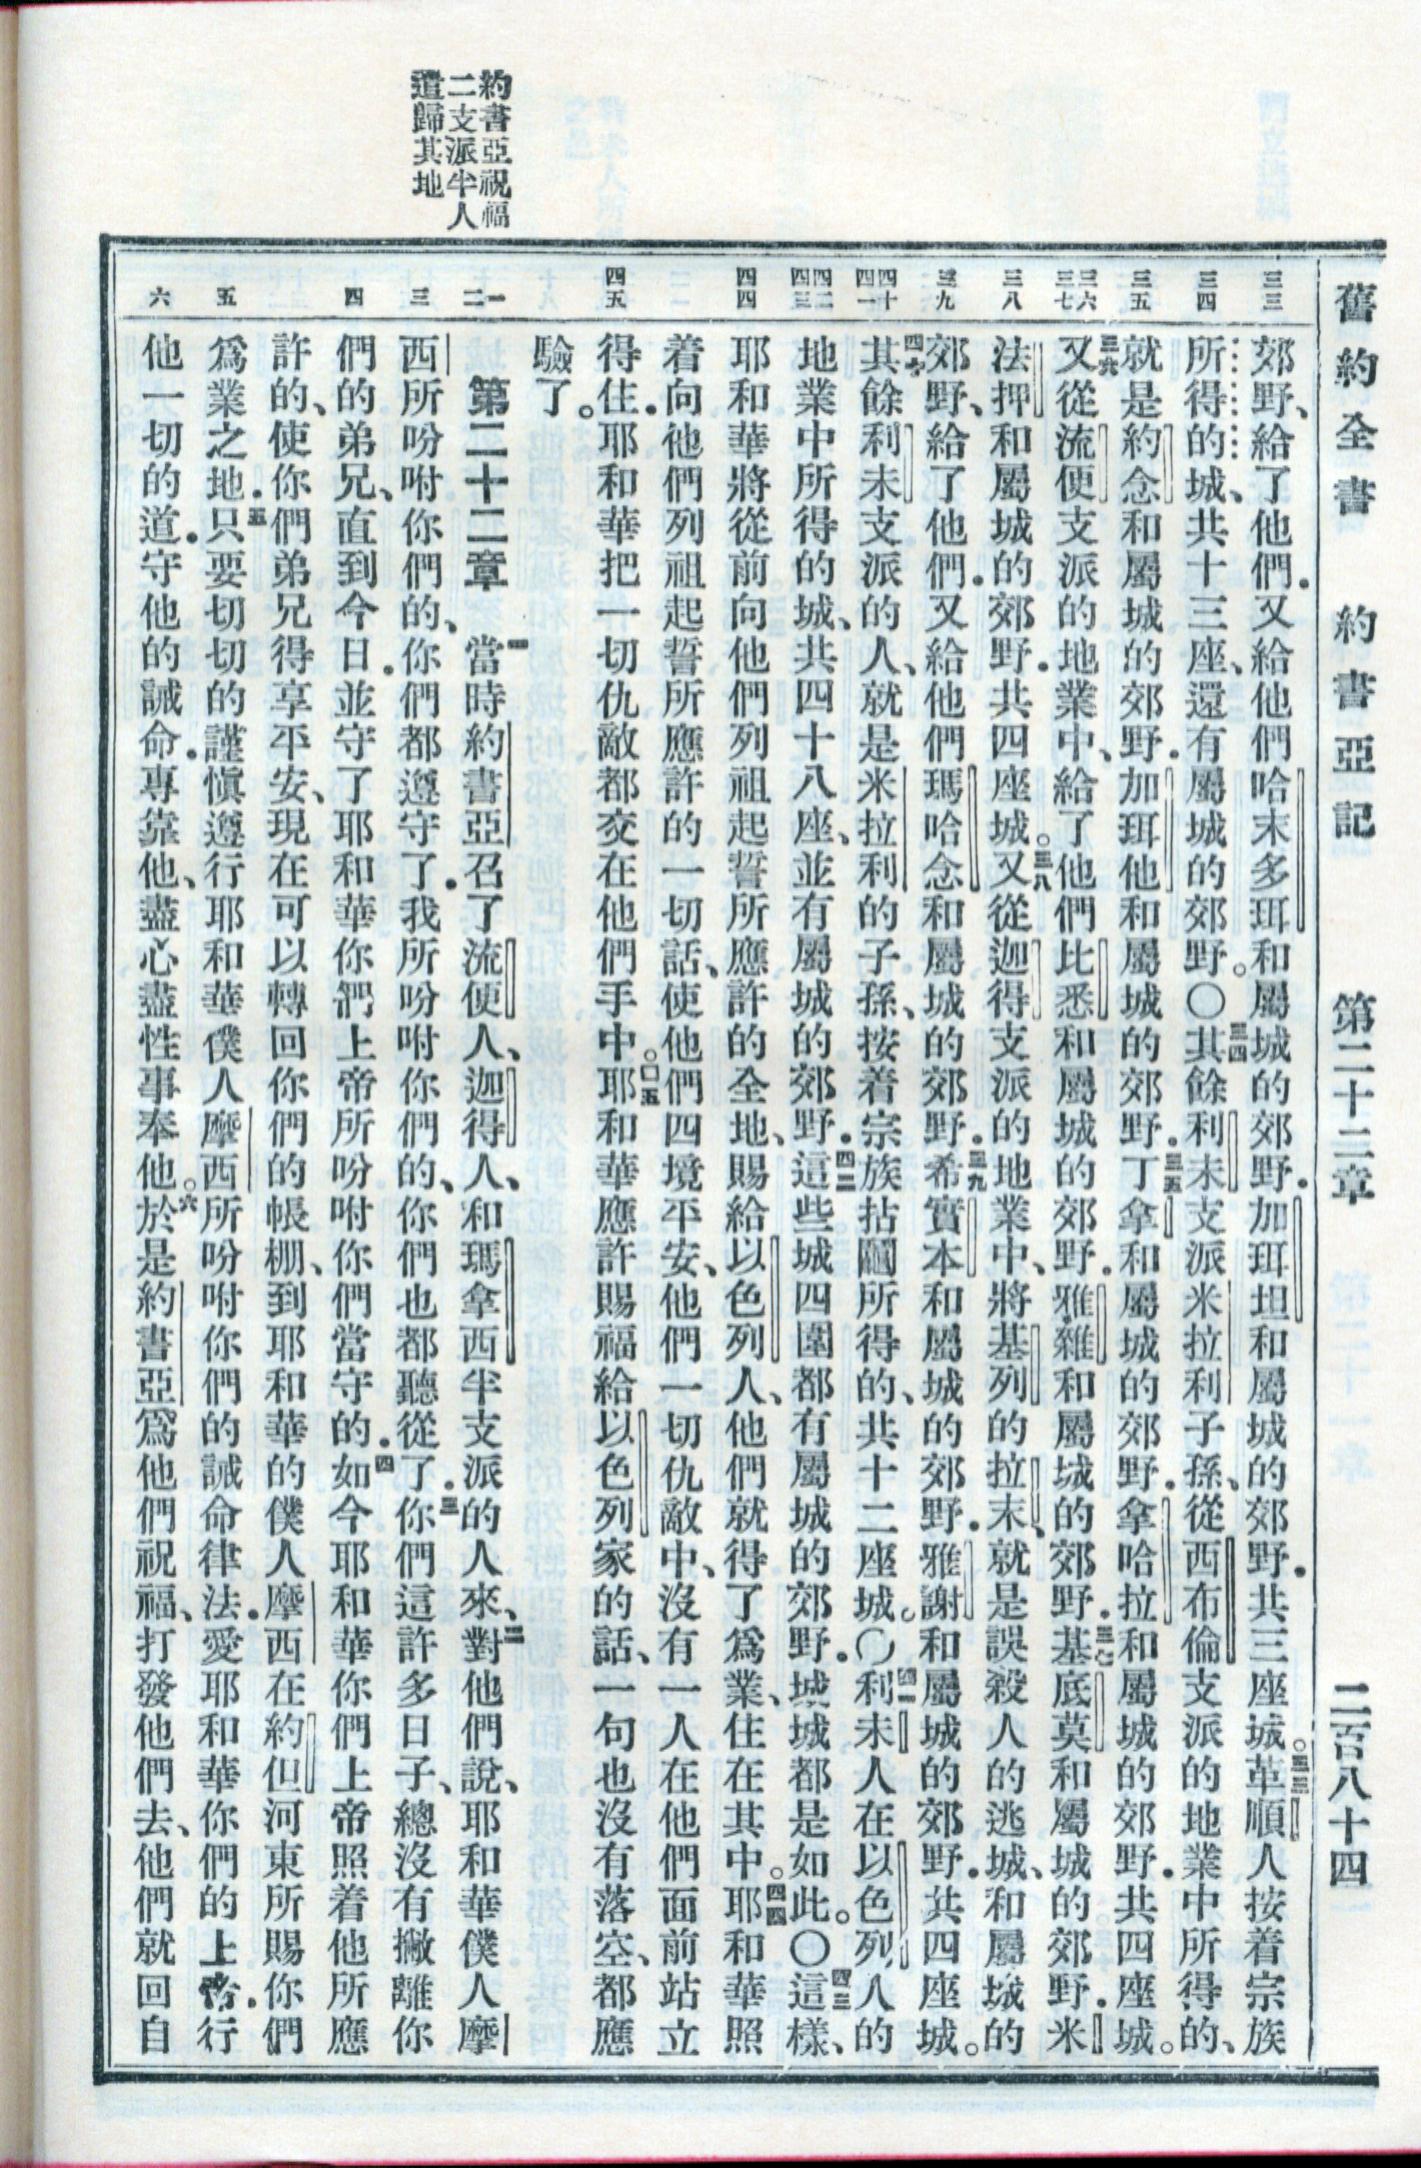 舊約全書　約書亞記　第二十二章　二百八十四
約書亞祝福
二支派半人
遣歸其地
三三
三四
三五
三六
三七
三八
三九
四十
四一
四二
四三
四四
四五
一
二
三
四
五
六
郊野、給了他們．又給他們哈末多珥和屬城的郊野．加珥坦和屬城的郊野．共三座城。三三革順人按着宗族
所得的城、共十三座、還有屬城的郊野。〇三四其餘利未支派米拉利子孫、從西布倫支派的地業中所得的、
就是約念和屬城的郊野．加珥他和屬城的郊野．三五丁拿和屬城的郊野．拿哈拉和屬城的郊野．共四座城。
三六又從流便支派的地業中、給了他們比悉和屬城的郊野．雅雜和屬城的郊野．三七基底莫和屬城的郊野．米
法押和屬城的郊野．共四座城。三八又從迦得支派的地業中、將基列的拉末、就是誤殺人的逃城、和屬城的
郊野、給了他們．又給他們瑪哈念和屬城的郊野．三九希實本和屬城的郊野．雅謝和屬城的郊野．共四座城。
四十其餘利未支派的人、就是米拉利的子孫、按着宗族拈鬮所得的、共十二座城。〇四一利未人在以色列人的
地業中所得的城、共四十八座、並有屬城的郊野．四二這些城四圍都有屬城的郊野．城城都是如此。〇四三這樣、
耶和華將從前向他們列祖起誓所應許的全地、賜給以色列人、他們就得了爲業、住在其中。四四耶和華照
着向他們列祖起誓所應許的一切話、使他們四境平安、他們一切仇敵中、沒有一人在他們面前站立
得住．耶和華把一切仇敵都交在他們手中。四五耶和華應許賜福給以色列家的話、一句也沒有落空、都應
驗了。
第二十二章　一當時約書亞召了流便人、迦得人、和瑪拿西半支派的人來、二對他們說、耶和華僕人摩
西所吩咐你們的、你們都遵守了．我所吩咐你們的、你們也都聽從了．三你們這許多日子、總沒有撇離你
們的弟兄、直到今日．並守了耶和華你們上帝所吩咐你們當守的．四如今耶和華你們上帝照着他所應
許的、使你們弟兄得享平安、現在可以轉回你們的帳棚、到耶和華的僕人摩西在約但河東所賜你們
爲業之地．五只要切切的謹愼遵行耶和華僕人摩西所吩咐你們的誡命律法．愛耶和華你們的上帝．行
他一切的道．守他的誡命．專靠他、盡心盡性事奉他。六於是約書亞爲他們祝福、打發他們去、他們就回自